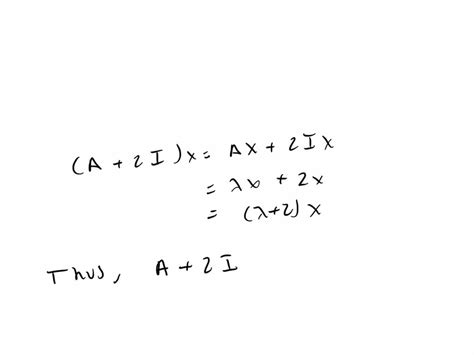 (A + 2I)x = Ax + 2Ix
= λx + 2x
= (λ+2) x
Thus, A + 2I